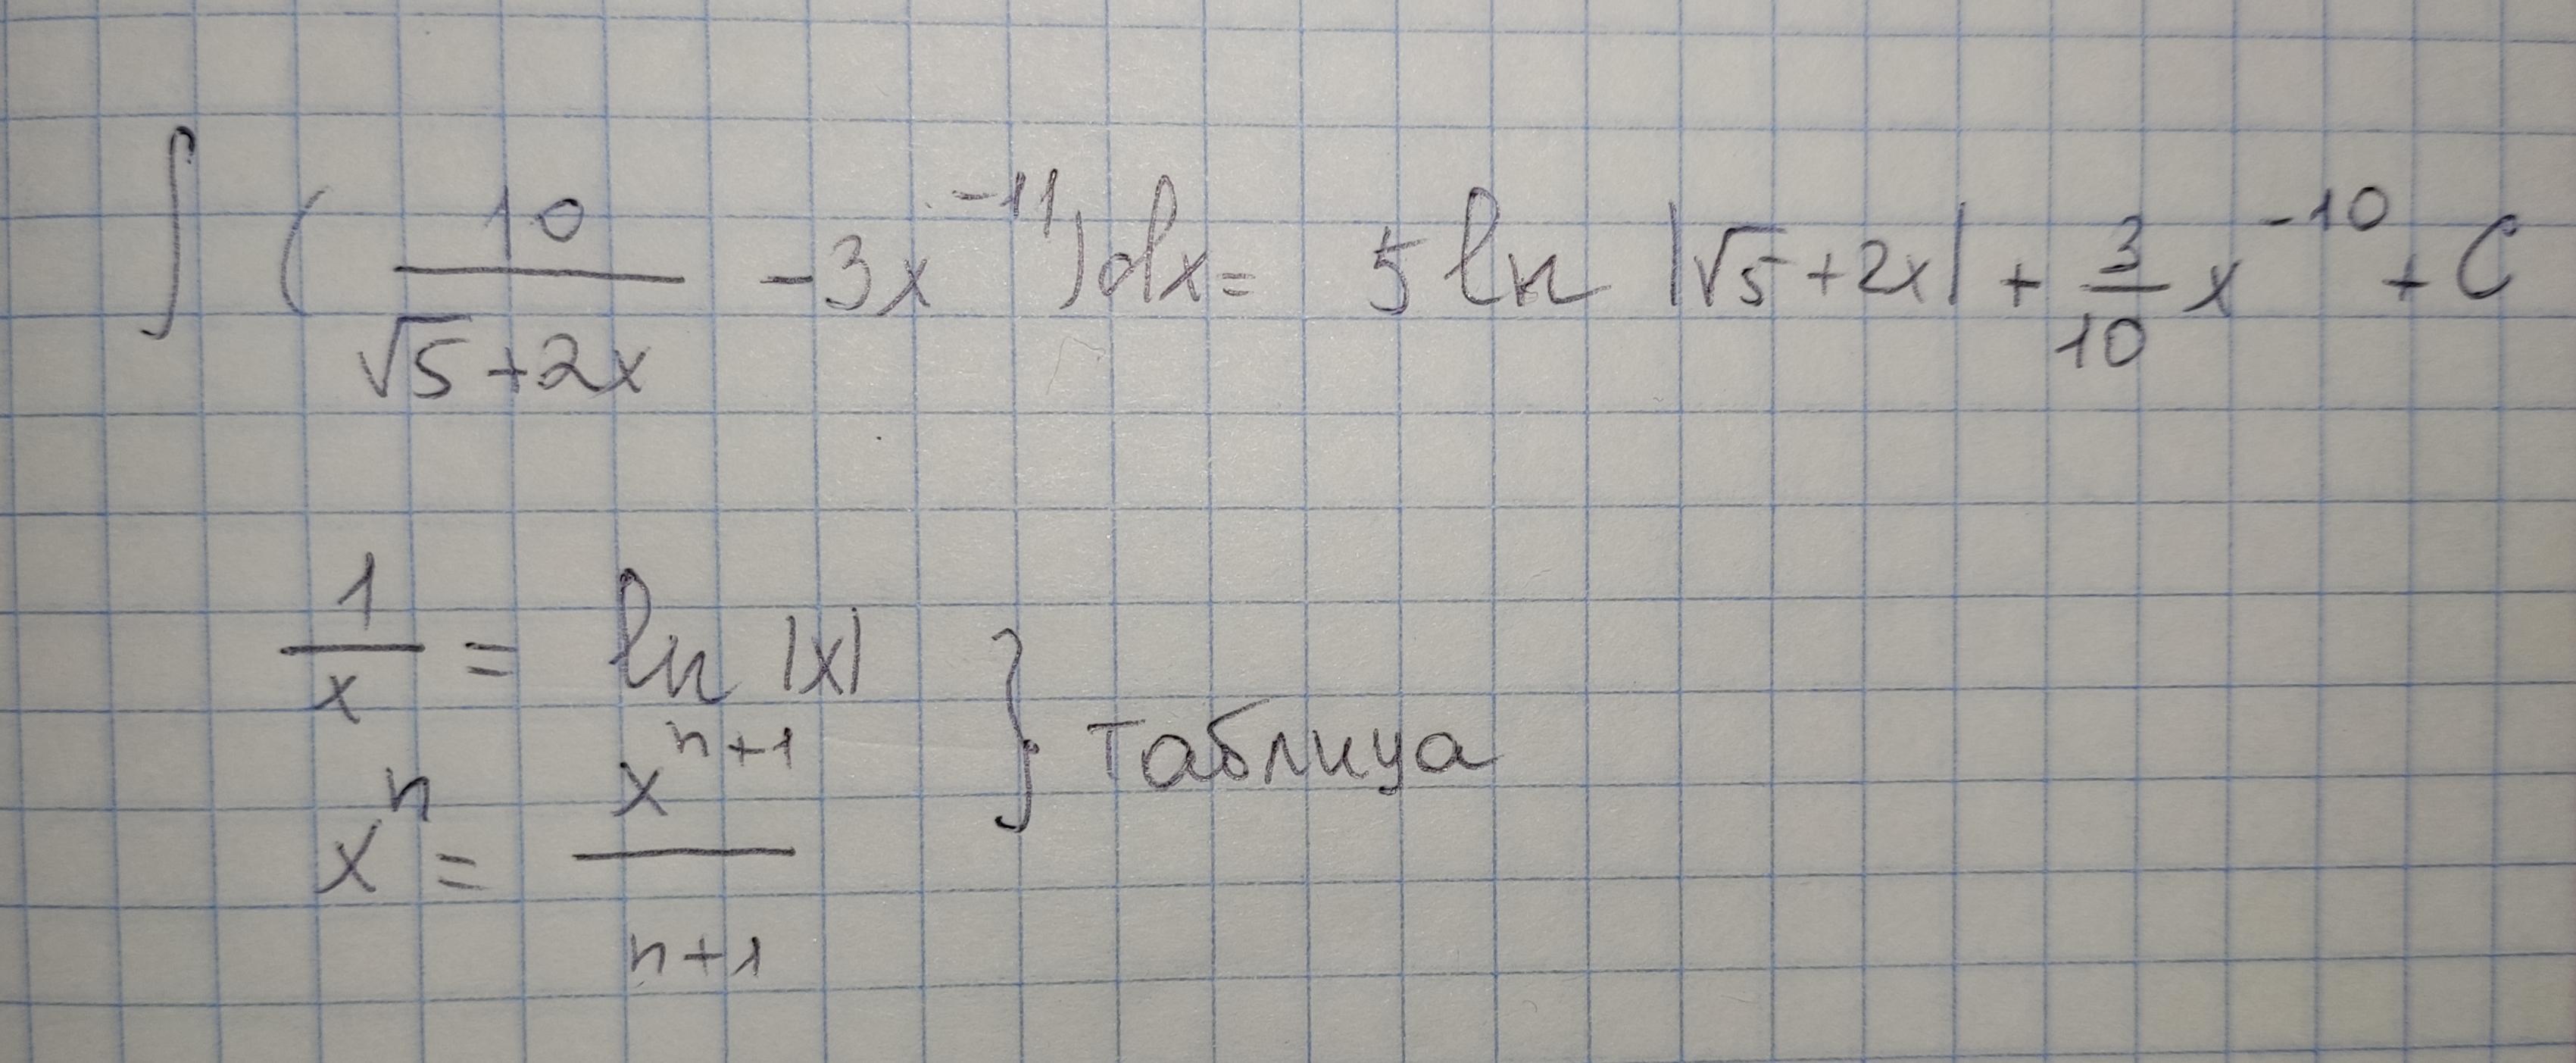 ∫ (10/(√5+2x) -3x⁻¹¹)dx= 5 ln |√5+2x| + 3/10 x⁻¹⁰ + C
1/x = ln |x|
xⁿ = xⁿ⁺¹/(n+1)
} таблица